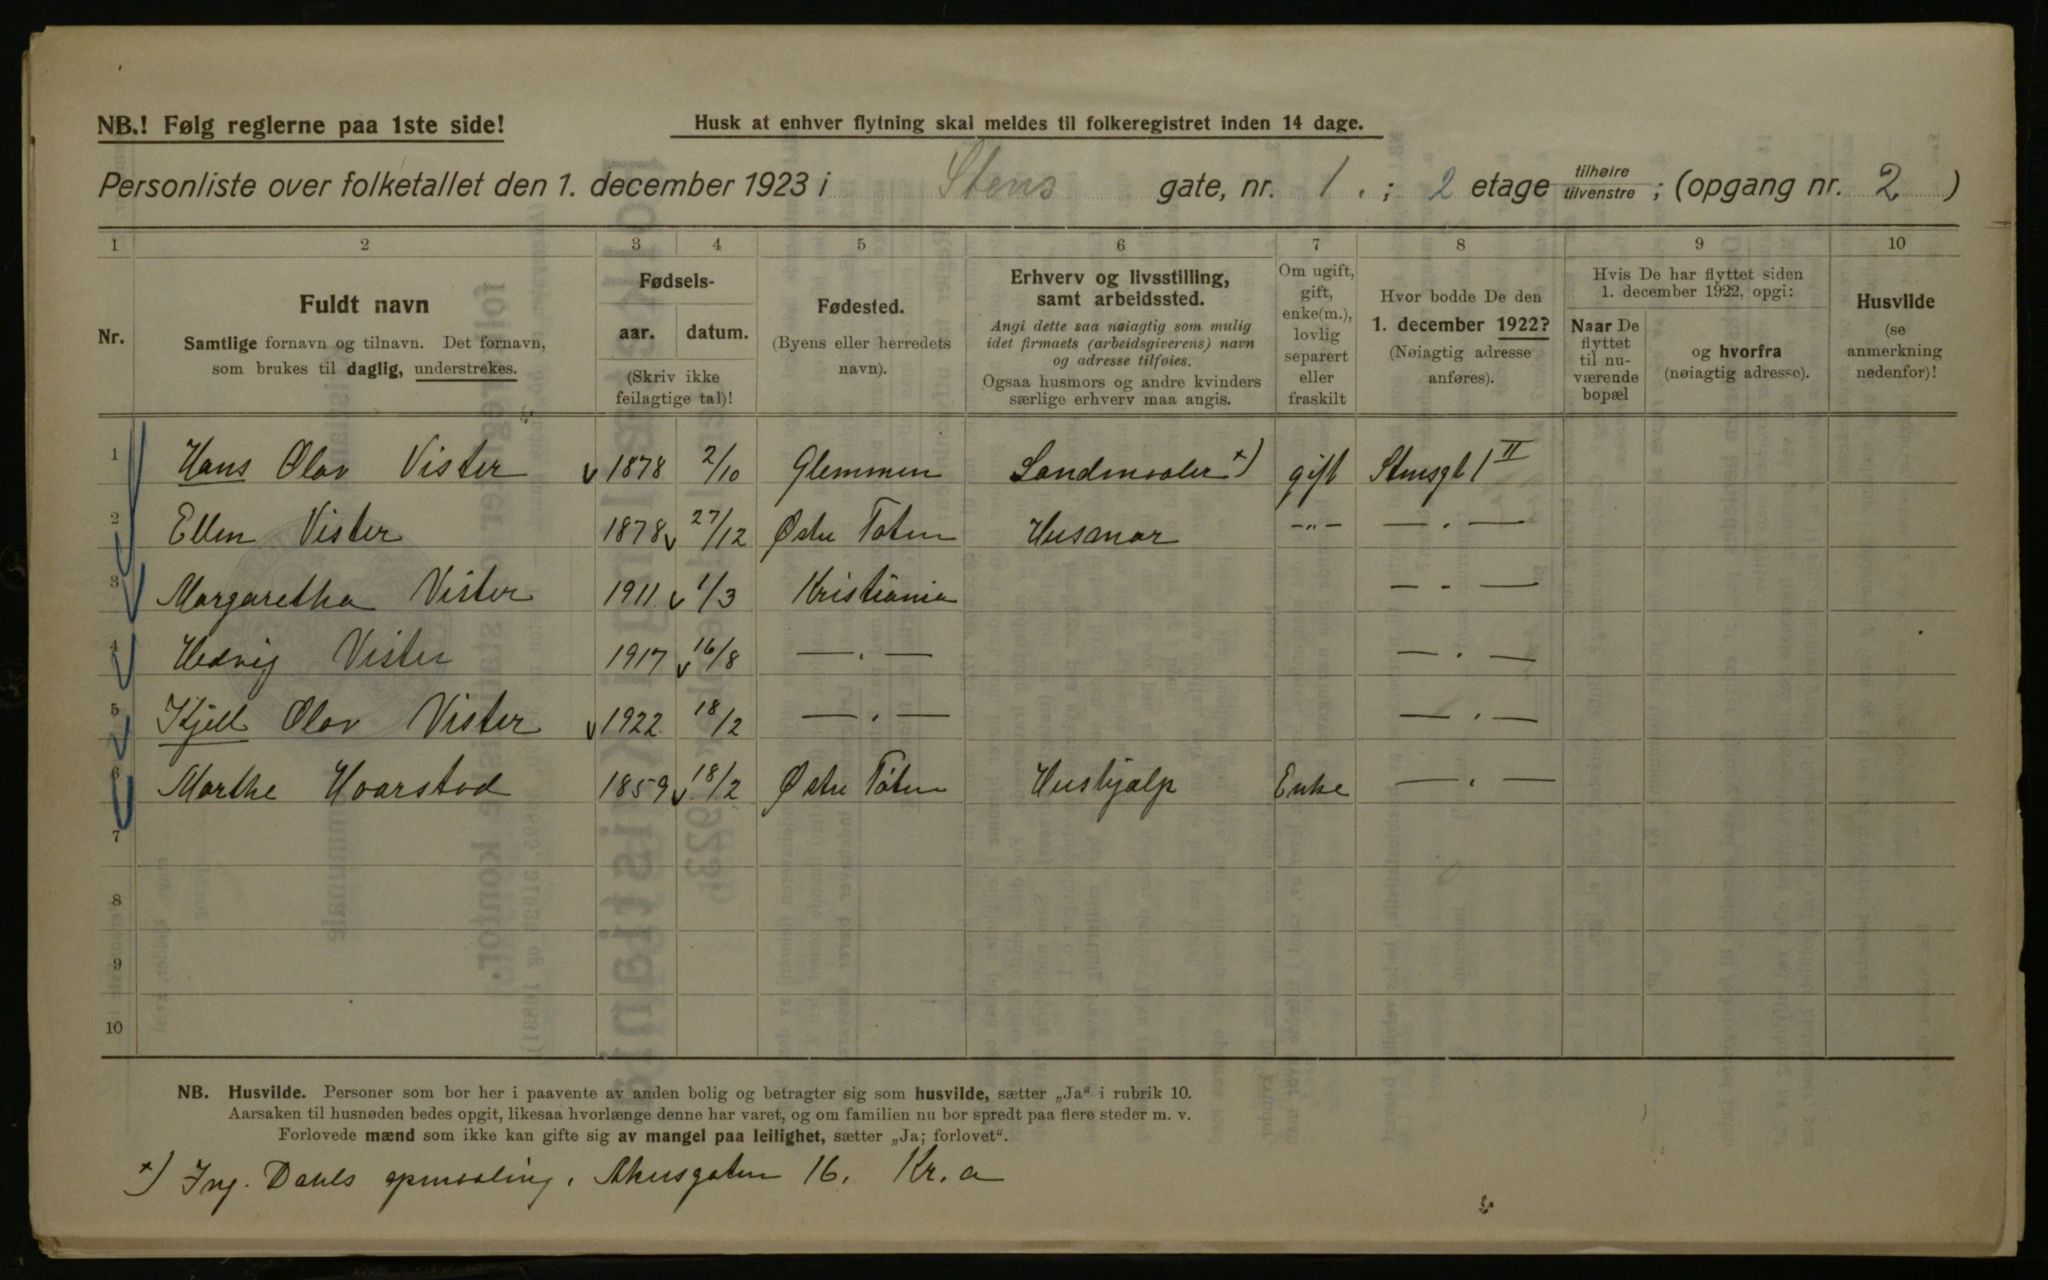 NB.! Følg reglerne paa 1ste side!
Husk at enhver flytning skal meldes til folkeregistret inden 14 dage.
Personliste over folketallet den 1. december 1923 i Stens gate, nr. 1. ; 2 etage tilhøire tilvenstre ; (opgang nr. 2 )
1 2 3 4 5 6 7 8 9 10
Nr.
Fuldt navn
Samtlige fornavn og tilnavn. Det fornavn,
som brukes til daglig, understrekes.
Fødsels-
aar. datum.
(Skriv ikke
feilagtige tal)!
Fødested.
(Byens eller herredets
navn).
Erhverv og livsstilling,
samt arbeidssted.
Angi dette saa nøiagtig som mulig
idet firmaets (arbeidsgiverens) navn
og adresse tilføies.
Ogsaa husmors og andre kvinders
særlige erhverv maa angis.
Om ugift,
gift,
enke(m.),
lovlig
separert
eller
fraskilt
Hvor bodde De den
1. december 1922?
(Nøiagtig adresse
anføres).
Hvis De har flyttet siden
1. december 1922, opgi:
Naar De
flyttet
til nu-
værende
bopæl
og hvorfra
(nøiagtig adresse).
Husvilde
(se
anmerkning
nedenfor)!
1 Hans Olav Vister 1878 2/10 Glemmen Landmaaler x) gift Stensgt 1 II
2 Ellen Vister 1878 27/12 Østre Toten Husmor -"- — . —
3 Margaretha Vister 1911 1/3 Kristiania — . —
4 Hedvig Vister 1917 16/8 — . — — . —
5 Kjell Olav Vister 1922 18/2 — . — — . —
6 Marthe Haarstad 1859 18/2 Østre Toten Hushjælp Enke — . —
7
8
9
10
NB. Husvilde. Personer som bor her i paavente av anden bolig og betragter sig som husvilde, sætter „Ja“ i rubrik 10.
Aarsaken til husnøden bedes opgit, likesaa hvorlænge denne har varet, og om familien nu bor spredt paa flere steder m. v.
Forlovede mænd som ikke kan gifte sig av mangel paa leilighet, sætter „Ja; forlovet“.
x) Ing. Dahls opmaaling, Akersgaten 16. Kr.a